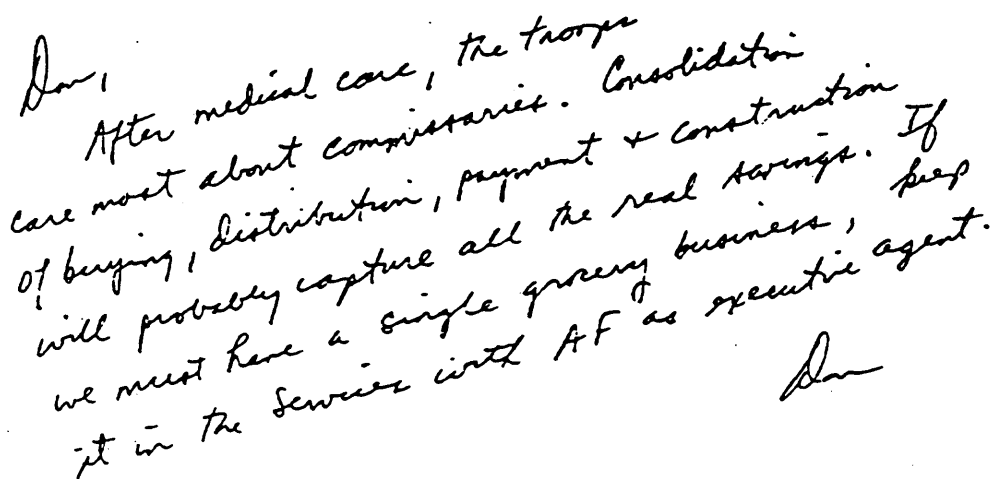 Don,
After medical care, the troops
care most about commissaries. Consolidation
of buying, distribution, payment & construction
will probably capture all the real savings. If
we must have a single grocery business, keep
it in the Services with AF as executive agent.
Don